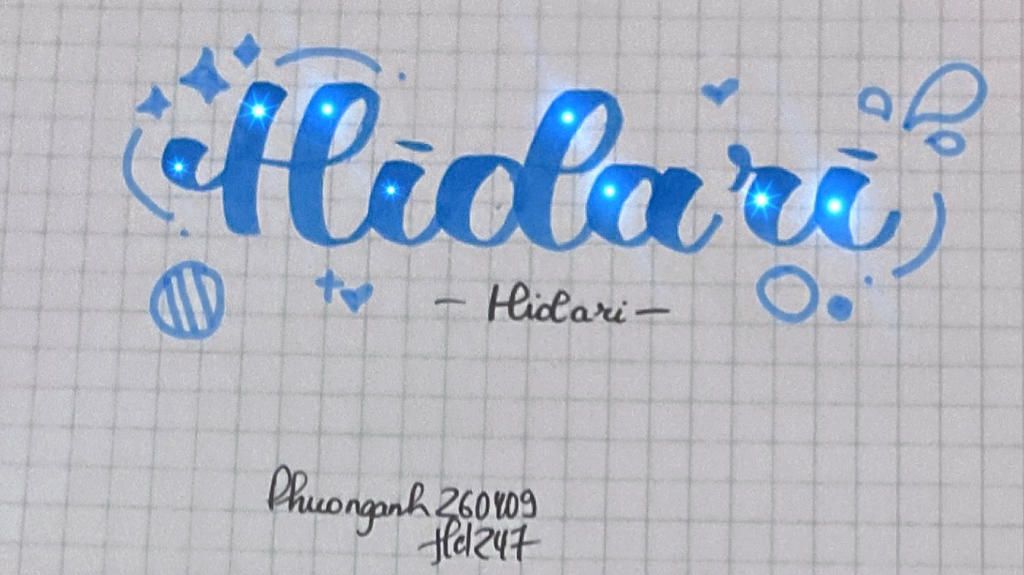 Hidari
- Hidari -
Phuonganh 260409
Hd247